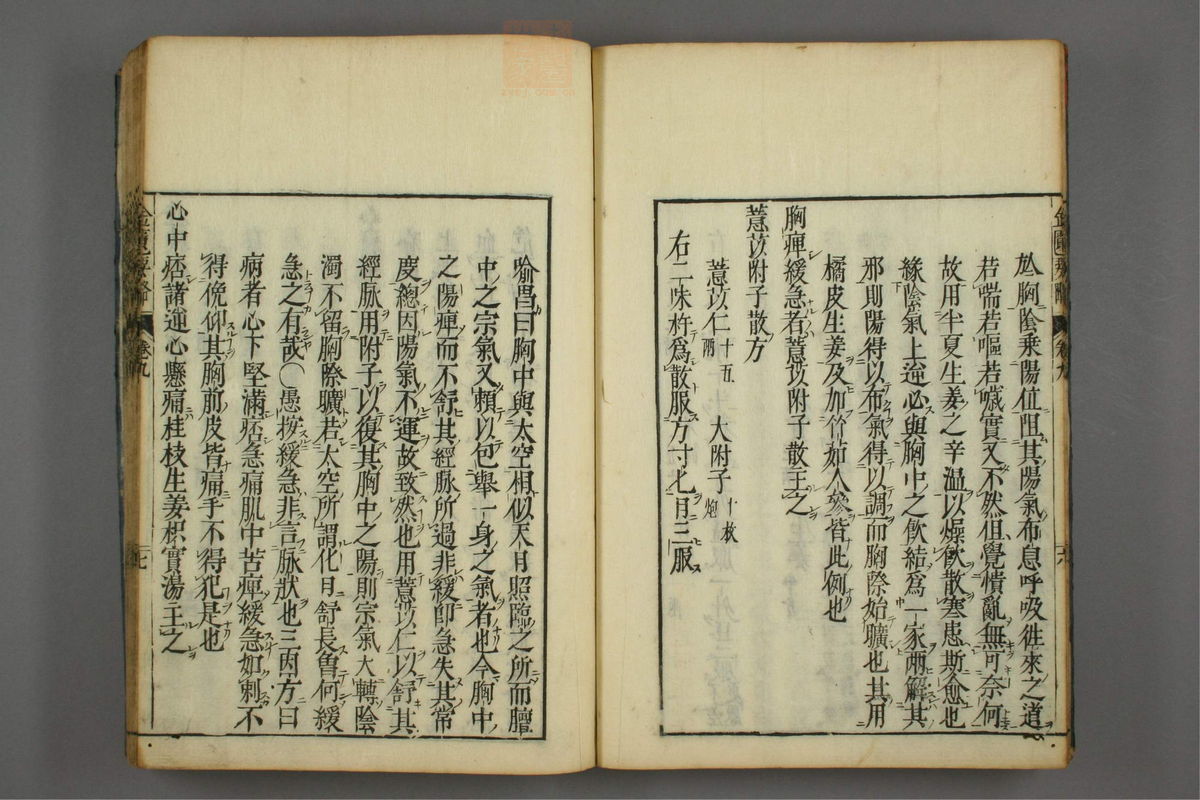 於胸陰乘陽位阻其陽氣布息呼吸徃來之道
若喘若嘔若噦實又不然但覺憒亂無可奈何
故用半夏生姜之辛溫以燥飲散寒患斯愈也
緣陰氣上逆心與胸中之飲結爲一家兩解其
邪則陽得以布氣得以調而胸際始曠也其用
橘皮生姜及加竹茹人參皆此例也
胸痺緩急者薏苡附子散主之
薏苡附子散方
薏苡仁十五兩 大附子十枚炮
右二味杵爲散服方寸匕日三服
喻昌曰胸中與太空相似天日照臨之所而膻
中之宗氣又賴以包舉一身之氣者也今胸中
之陽痺而不舒其經脉所過非緩卽急失其常
度總因陽氣不運故致然也用薏苡仁以舒其
經脉用附子以復其胸中之陽則宗氣大轉陰
濁不留胸際曠若太空所謂化日舒長曾何緩
急之有哉〇愚按緩急非言脉狀也三因方曰
病者心下堅滿痞急痛肌中苦痺緩急如刺不
得俛仰其胸前皮皆痛手不得犯是也
心中痞諸逆心懸痛桂枝生姜枳實湯主之
卷九